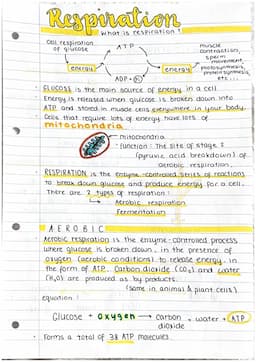 Respiration
what is respiration?
cell respiration
of glucose
ATP
muscle
contraction,
sperm
movement,
photosynthesis,
protein synthesis,
etc...
energy
energy
ADP + Pi
GLUCOSE is the main source of energy in a cell
Energy is released when glucose is broken down into
ATP and stored in muscle cells everywhere in your body.
Cells that require lots of energy have lots of
mitochondria
mitochondria
function: The site of stage 2
(pyruvic acid breakdown) of
aerobic respiration.
RESPIRATION is the enzyme-controlled series of reactions
to break down glucose and produce energy for a cell.
There are 2 types of respiration:
Aerobic respiration
Fermentation
AEROBIC
Aerobic respiration is the enzyme-controlled process
where glucose is broken down, in the presence of
oxygen (aerobic conditions) to release energy, in
the form of ATP. Carbon dioxide (CO2) and water
(H2O) are produced as by products.
(same in animal & plant cells)
equation:
Glucose + oxygen → carbon dioxide + water + ATP
Forms a total of 38 ATP molecules.